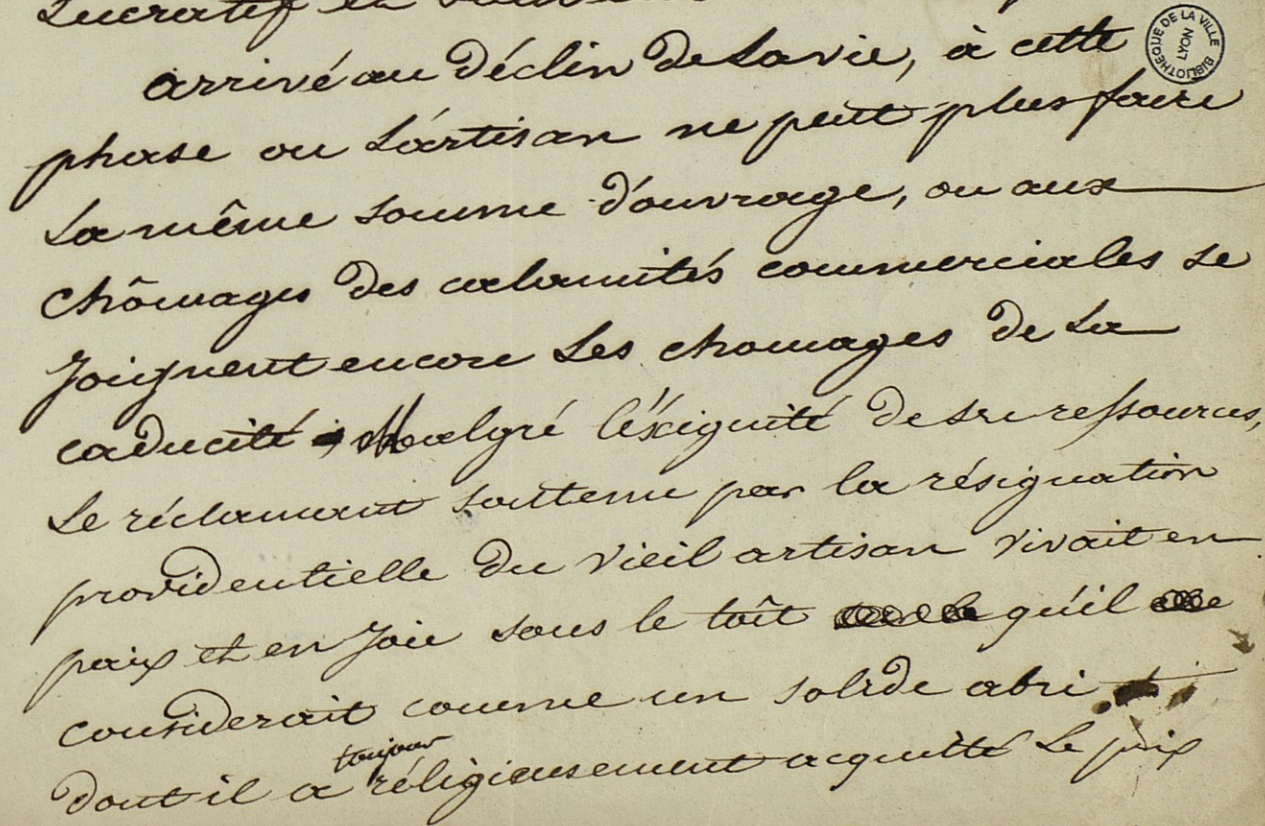 Lucratif et
arrivé au déclin de la vie, à cette
phase ou l'artisan ne peut plus faire
la même somme d'ouvrage, ou aux
chômages des calamités commerciales se
joignent encore les chomages de la
caducité Malgré l'éxiguité de ses ressources,
Le réclamant soutenu par la résignation
providentielle du vieil artisan vivait en
paix et en joie sous le toît qu'il
considerait comme un solide abri
toujour
dont il a réligieusement acquitté le prix
BIBLIOTHEQUE DE LA VILLE
LYON